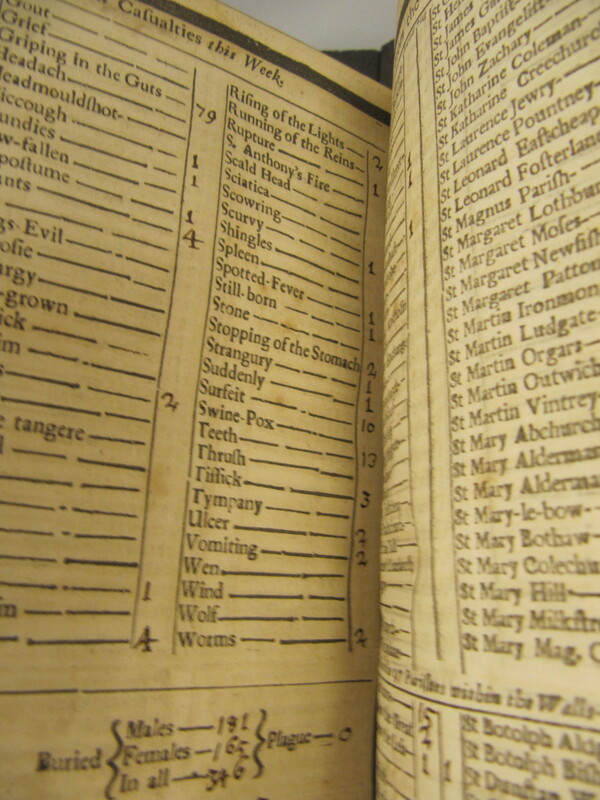 Casualties this Week.
Gout
Grief
Griping in the Guts 79
Headach
Headmouldshot
iccough
undies 1
w-fallen 1
postume
ants 1
gs-Evil 4
osie
argy
-grown
ick
im
2
e tangere
1
4
Rising of the Lights 2
Running of the Reins
Rupture
St. Anthony's Fire 1
Scald Head
Sciatica
Scowring
Scurvy
Shingles 1
Spleen
Spotted-Fever
Still-born 1
Stone 1
Stopping of the Stomach 2
Strangury 1
Suddenly 1
Surfeit 10
Swine-Pox
Teeth 13
Thrush
Tissick 3
Tympany
Ulcer 2
Vomiting 2
Wen
Wind
Wolf
Worms 2
Buried
Males 181
Females 165
In all 346
Plague 0
St James Ga
St John Baptist
St John Evangelist
St John Zachary
St Katharine Coleman
St Katharine Creechurch
St Laurence Jewry
St Laurence Pountney
St Leonard Eastcheap
St Leonard Fosterlane
St Magnus Parish
St Margaret Lothbur
St Margaret Moses
St Margaret Newfish
St Margaret Patton
St Martin Ironmon
St Martin Ludgate
St Martin Orgars
St Martin Outwich
St Martin Vintrey
St Mary Abchurch
St Mary Alderman
St Mary Alderma
St Mary-le-bow
St Mary Bothaw
St Mary Colechu
St Mary Hill
St Mary Milkstre
St Mary Mag.
Parishes within the Walls
St Botolph Aldg
St Botolph Bish
St Dunstan W